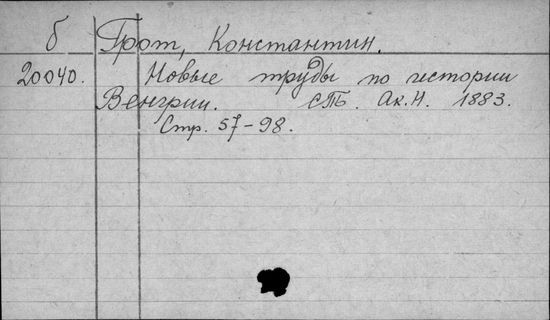 б Грот, Константин.
20040. Новые труды по истории
Венгрии. сТб. Ак.Н. 1883.
Стр. 57-98.